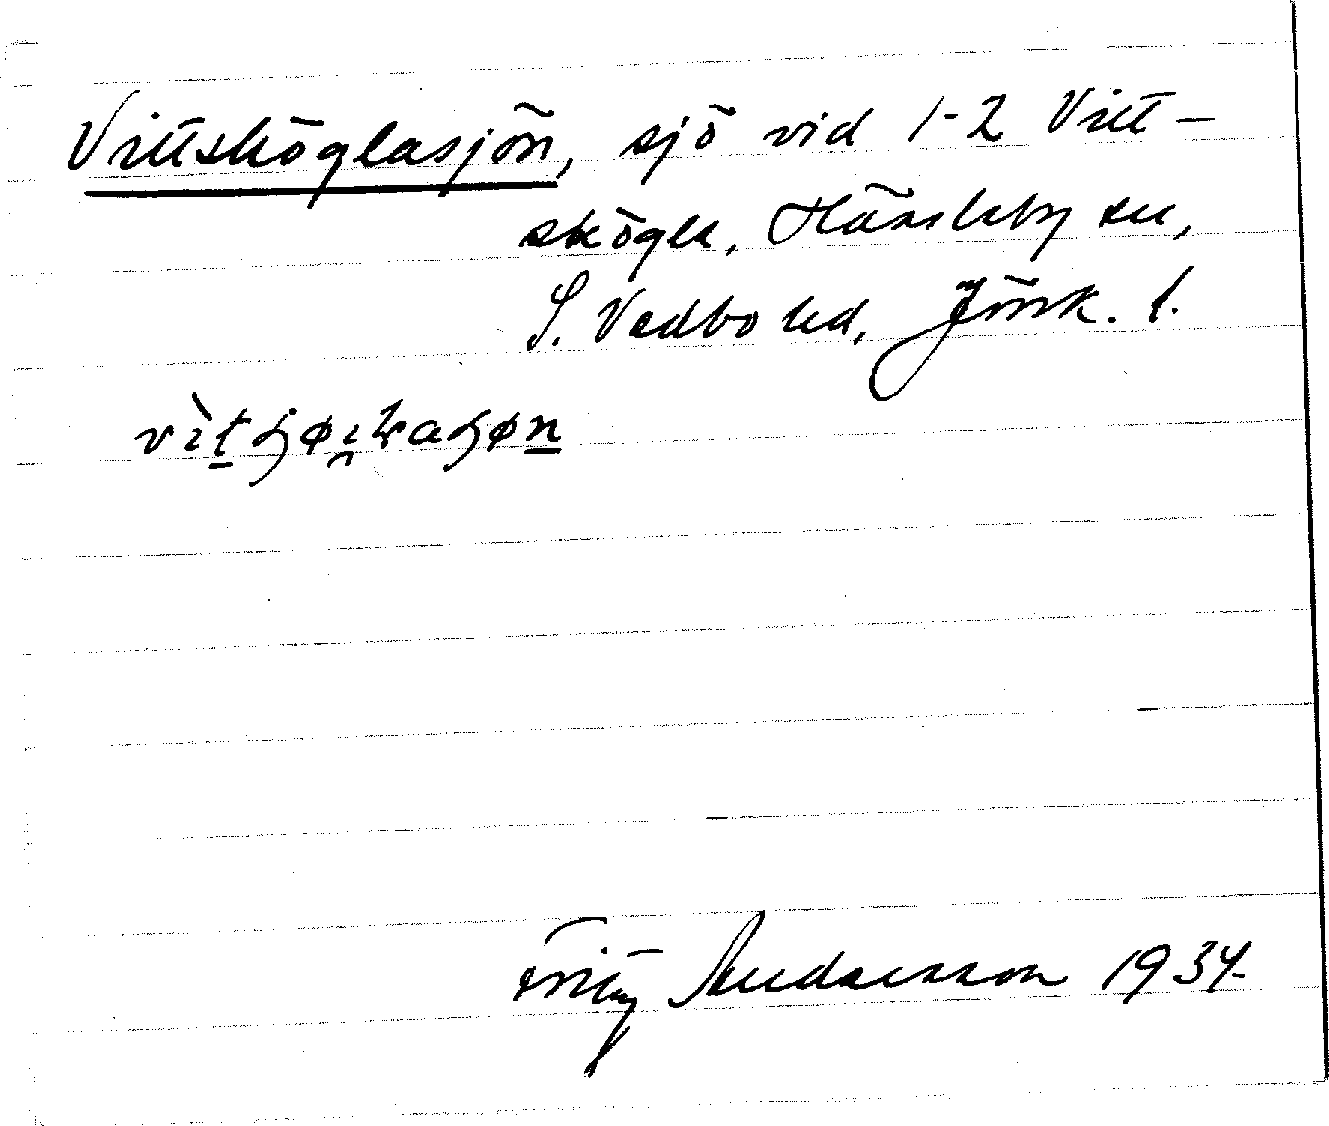 Vittsköglasjön, sjö vid 1-2 Vitt-
skögle, Hässleby sn,
S. Vedbo hd, Jönk. l.
Fritz Andersson 1934.